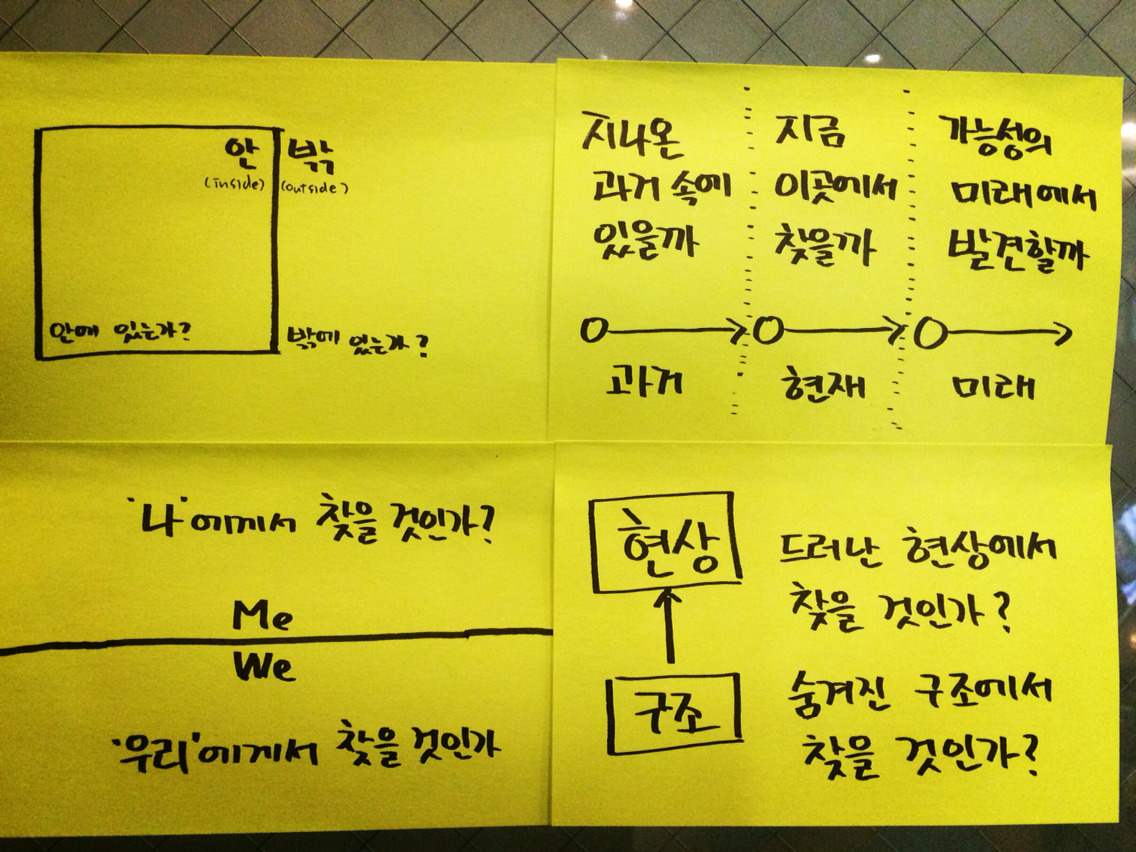 안 밖
(inside) (outside)
안에 있는가?
밖에 있는가?
지나온
과거 속에
있을까
지금
이곳에서
찾을까
가능성의
미래에서
발견할까
과거
현재
미래
'나'에게서 찾을 것인가?
Me
We
'우리'에게서 찾을 것인가
현상
구조
드러난 현상에서
찾을 것인가?
숨겨진 구조에서
찾을 것인가?